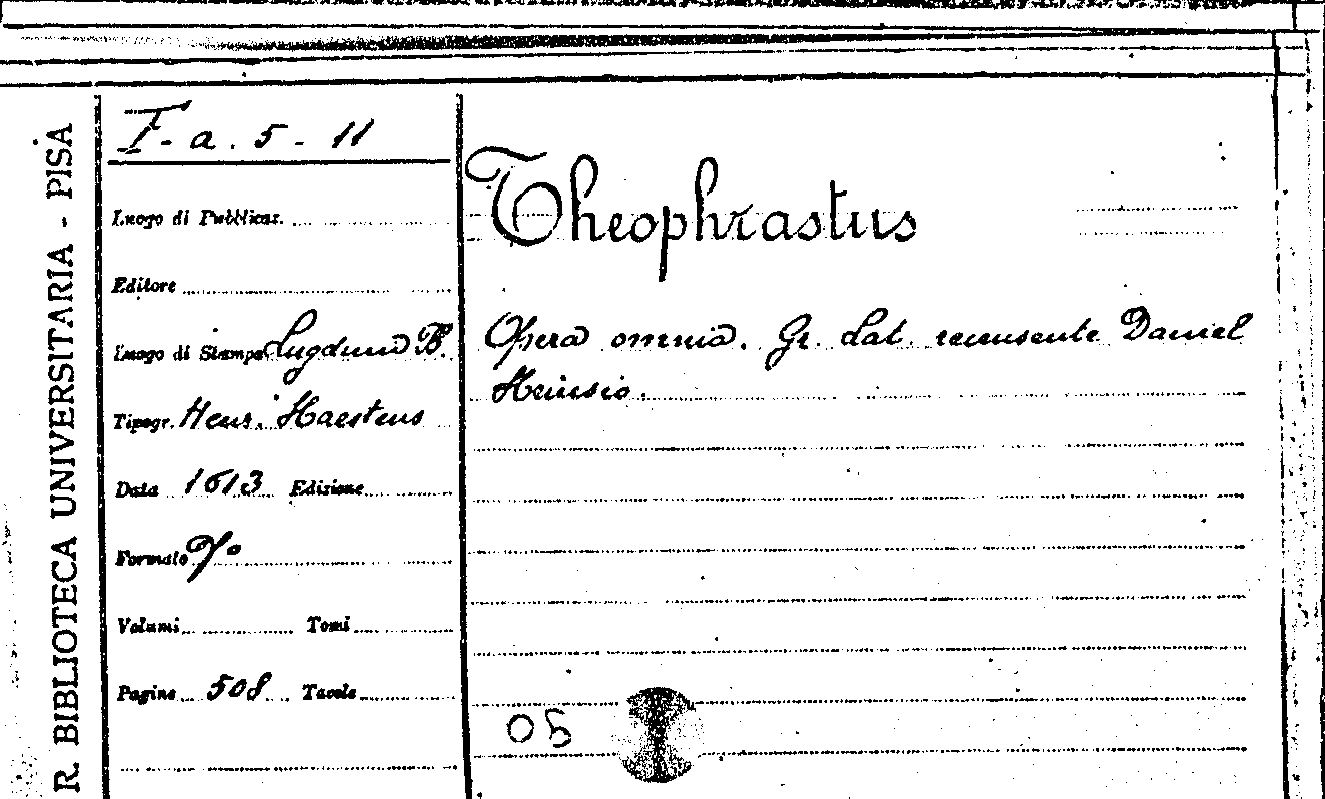 R. BIBLIOTECA UNIVERSITARIA - PISA
F. a. 5 - 11
Luogo di Pubblicaz.
Editore
Luogo di Stampa Lugduni B.
Tipogr. Henr. Haesteus
Data 1613 Edizione
Formato fo
Volumi Tomi
Pagine 508 Tavole
Theophrastus
Opera omnia. Gr. Lat. recensente Daniel
Heinsio.
05